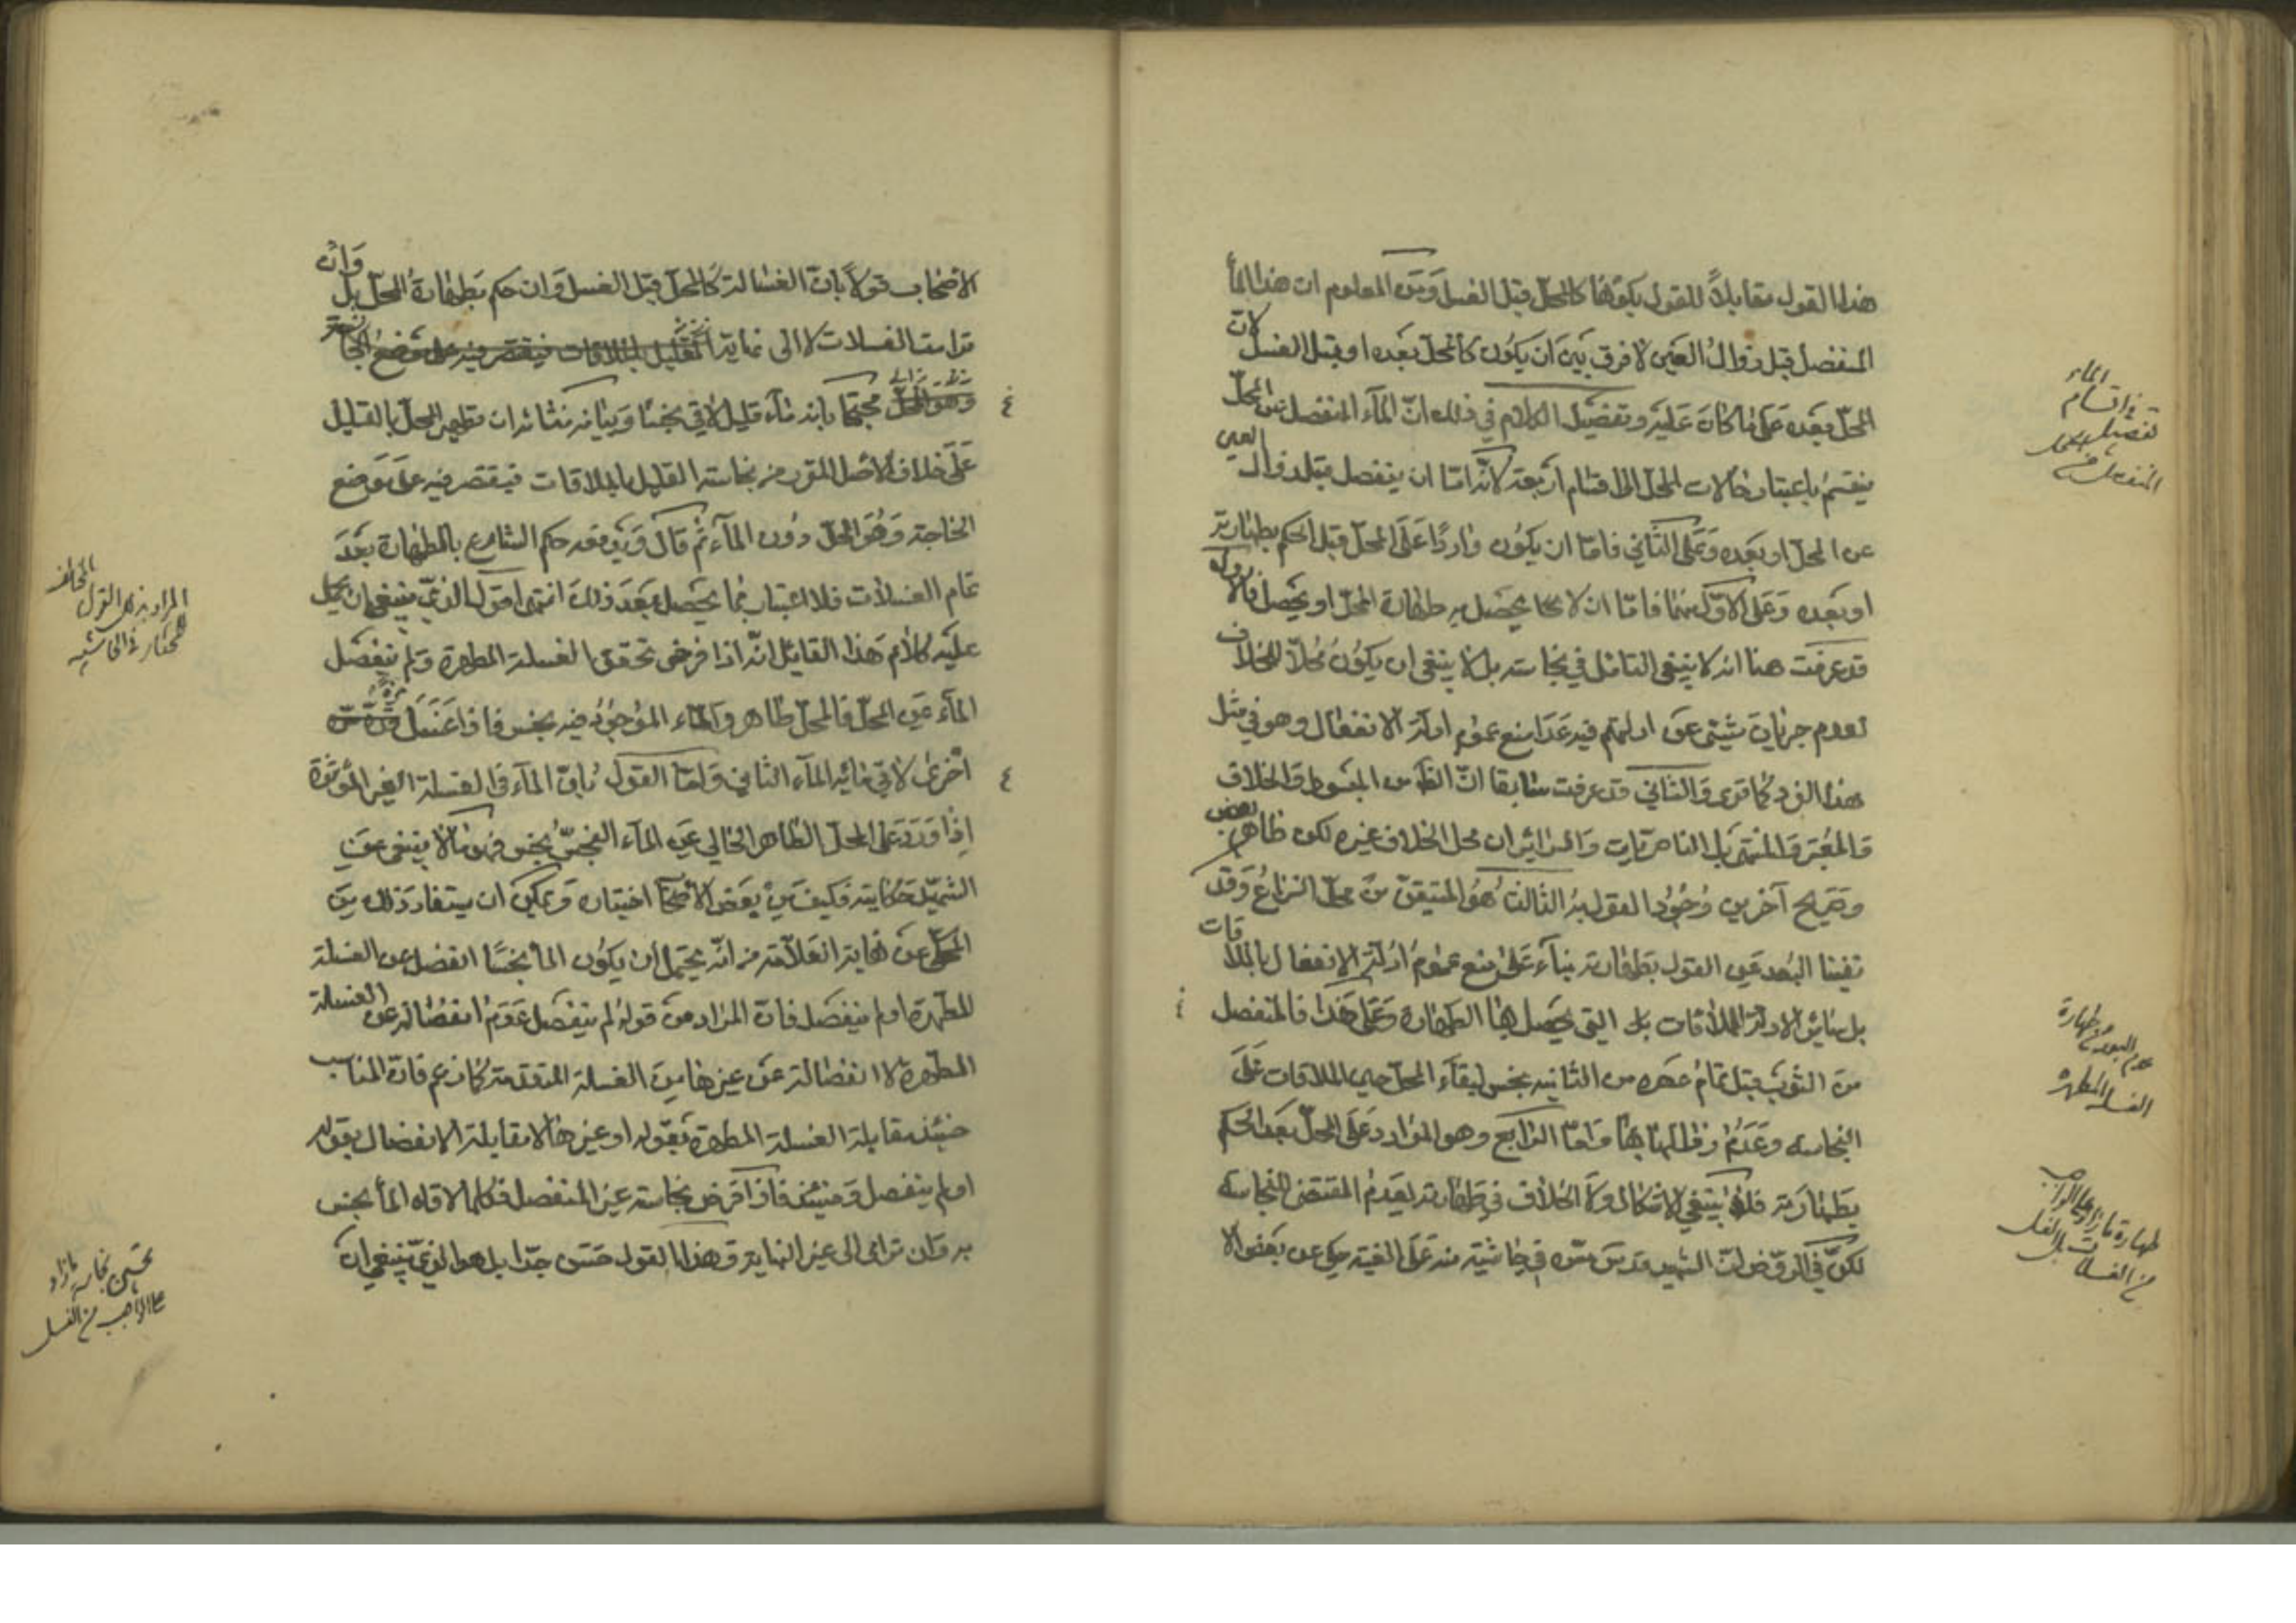 هذا القول مقابلاً للقول بكونها كالمحل قبل الغسل ومن المعلوم ان هذا الماء
المنفصل قبل زوال العين لا فرق بين ان يكون كالمحل بعده او قبل الغسل لان
المحل بعده على ما كان عليه وتفصيل الكلام في ذلك ان الماء المنفصل عن المحل
ينقسم باعتبار حالات المحل الى اقسام اربعة لانه اما ان ينفصل قبل زوال العين
عن المحل او بعده وعلى الثاني فاما ان يكون واردًا على المحل قبل الحكم بطهارته
او بعده وعلى الاول منهما فاما ان لا يحصل به طهارة المحل او يحصل فالاول
قد عرفت هنا انه لا ينبغي التامل في نجاسته بل لا ينبغي ان يكون محلاً للخلاف
لعدم جريان شيء من ادلتهم فيه عدا منع عموم ادلة الانفعال وهو في مثل
هذا الفرد كما ترى والثاني قد عرفت سابقا ان الظ من المبسوط والخلاف
والمعتبر والمنتهى بل الناصريات والسرائر ان محل الخلاف غيره لكن ظاهر بعض
وصريح آخرين وجود القول به الثالث هو المتيقن من محل النزاع وقد
نفينا البعد عن القول بطهارته بناء على منع عموم ادلة الانفعال بالملاقات
بل سائر الادلة للملاقات بل التي يحصل بها الطهارة وعلى هذا فالمنفصل
من الثوب قبل تمام عصره من الثانيه نجس لبقاء المحل حين الملاقات على
النجاسه وعدم زوالها بها واما الرابع وهو الوارد على المحل بعد الحكم
بطهارته فلا ينبغي الاشكال ولا الخلاف في طهارته لعدم المقتضى للنجاسه
لكن في الروض ان الشهيد قدس سره في حاشية منه على الفيه حكى عن بعض الا
الماء
في اقسام
تفصيل
المنفصل عن المحل
عدم البعد في طهارة
الغسالة المطهره
طهارة ما زاد على الواجب
من الغسلات
الاصحاب قولاً بان الغسالة كالمحل قبل الغسل وان حكم بطهارة المحل بل وان
ترامت الغسلات لا الى نهاية
محتجا بانه ماء قليل لاقى نجسًا وبيانه ان تطهير المحل بالقليل
على خلاف الاصل المقرر من نجاسة القليل بالملاقات فيقتصر فيه على موضع
الحاجة وهو المحل دون الماء ثم قال وفيه حكم الشارع بالطهارة بعد
تمام الغسلات فلا اعتبار بما يحصل بعد ذلك انتهى اقول الذي ينبغي ان يحمل
عليه كلام هذا القائل انه اذا فرض تحقق الغسلة المطهرة ولم ينفصل
الماء عن المحل فالمحل طاهر والماء الموجود فيه نجس فاذا غسل مرة
اخرى لاقى مائه الماء الثاني واما القول بان الماء في الغسلة الغير المؤثرة
اذا ورد على المحل الطاهر الخالي عن الماء النجس نجس فهو مما لا ينبغي عن
الشهيد حكايته فكيف من بعض الاصحاب اختياره ويمكن ان يستفاد ذلك من
المحكي عن نهاية العلامة من انه يحتمل ان يكون الماء نجسًا انفصل عن الغسلة
المطهرة او لم ينفصل فان المراد من قوله لم ينفصل عدم انفصاله عن الغسلة
المطهرة لا انفصاله عن غيرها من الغسلة المتقدمة كما زعم فان المناسب
حينئذ مقابلة الغسلة المطهرة بقوله او غيرها لا مقابلة الانفصال بقوله
او لم ينفصل وحينئذ فاذا فرض نجاسة غير المنفصل فكلما لاقاه الماء نجس
به وان ترامى الى غير النهاية وهذا القول حسن جدا بل هو الذي ينبغي ان
المراد بهذا القول المخالف
المختار في الحاشيه
تحسين نجاسة ما زاد
على الواجب من الغسل